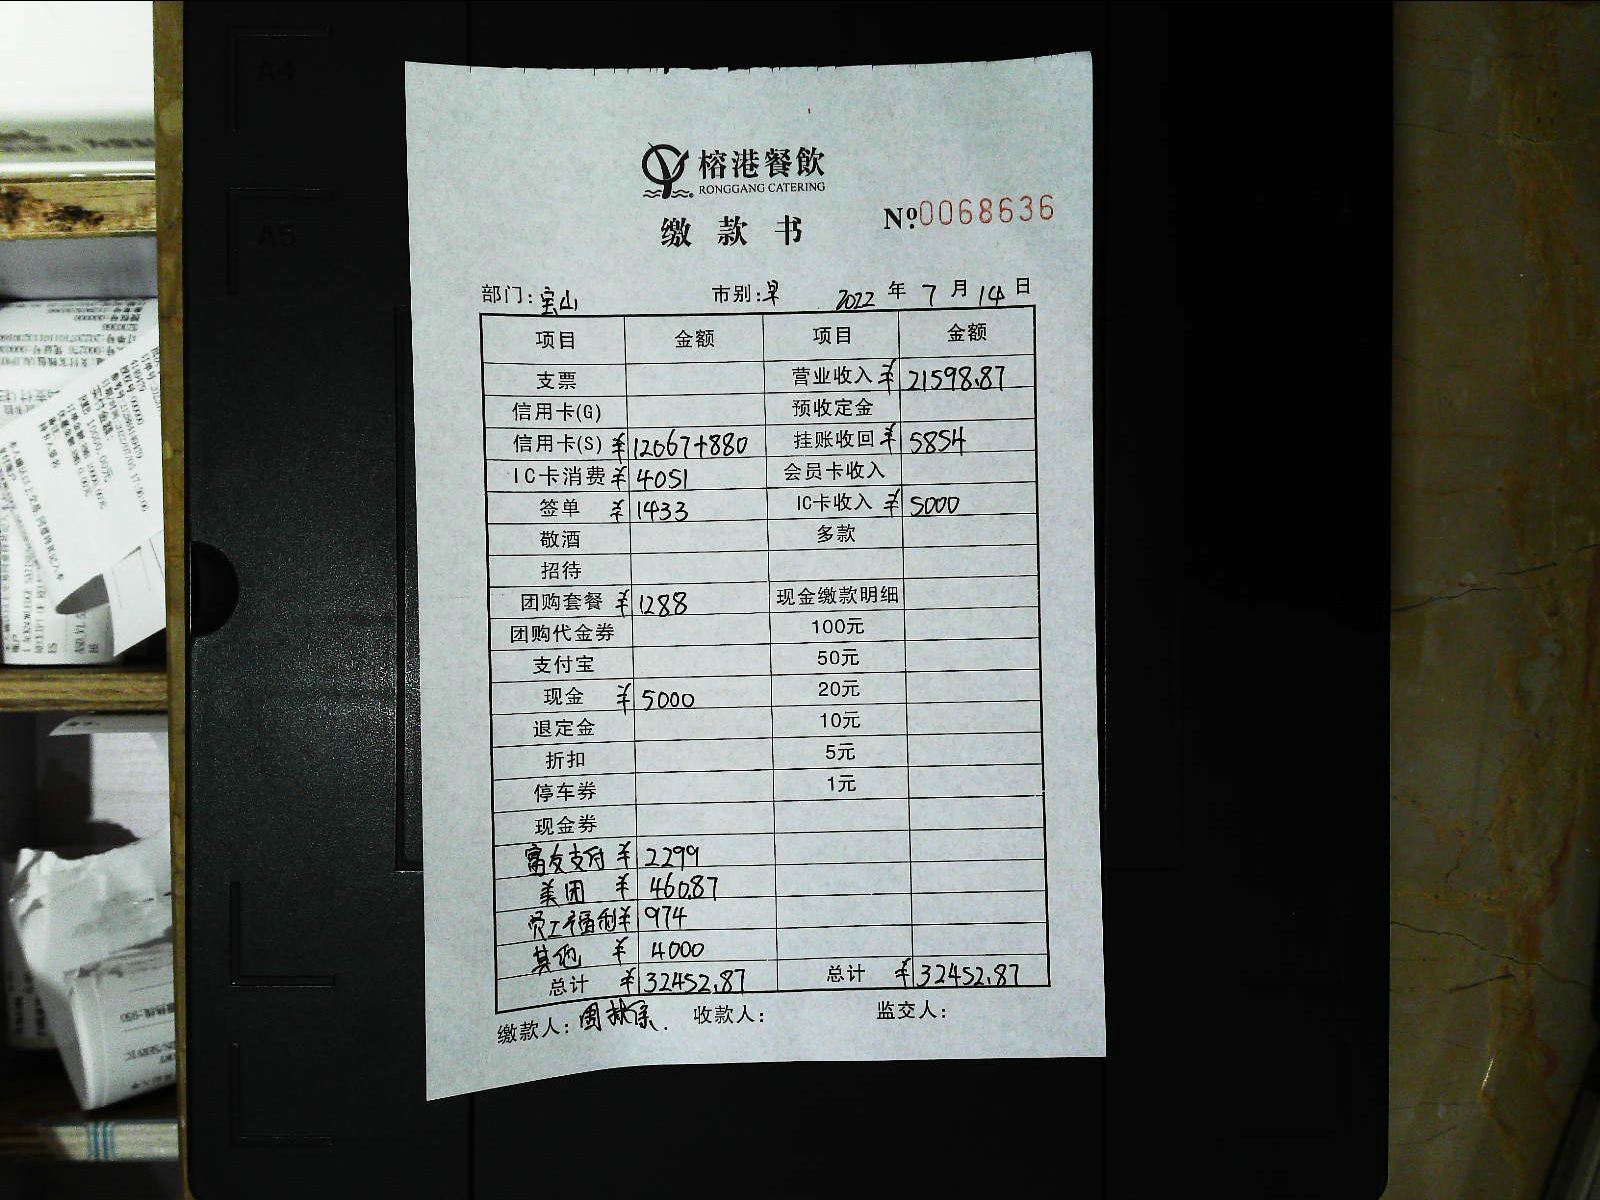 榕港餐飲
RONGGANG CATERING
缴款书 Nº:0068636
部门:宝山 市别:早 2022年7月14日
项目 金额 项目 金额
支票 营业收入 ¥21598.87
信用卡(G) 预收定金
信用卡(S) ¥12067+880 挂账收回 ¥5854
IC卡消费 ¥4051 会员卡收入
签单 ¥1433 IC卡收入 ¥5000
敬酒 多款
招待
团购套餐 ¥1288 现金缴款明细
团购代金券 100元
支付宝 50元
现金 ¥5000 20元
退定金 10元
折扣 5元
停车券 1元
现金券
富友支付 ¥2299
美团 ¥460.87
员工福利 ¥974
其他 ¥4000
总计 ¥32452.87 总计 ¥32452.87
缴款人: 收款人: 监交人:
A4
A5